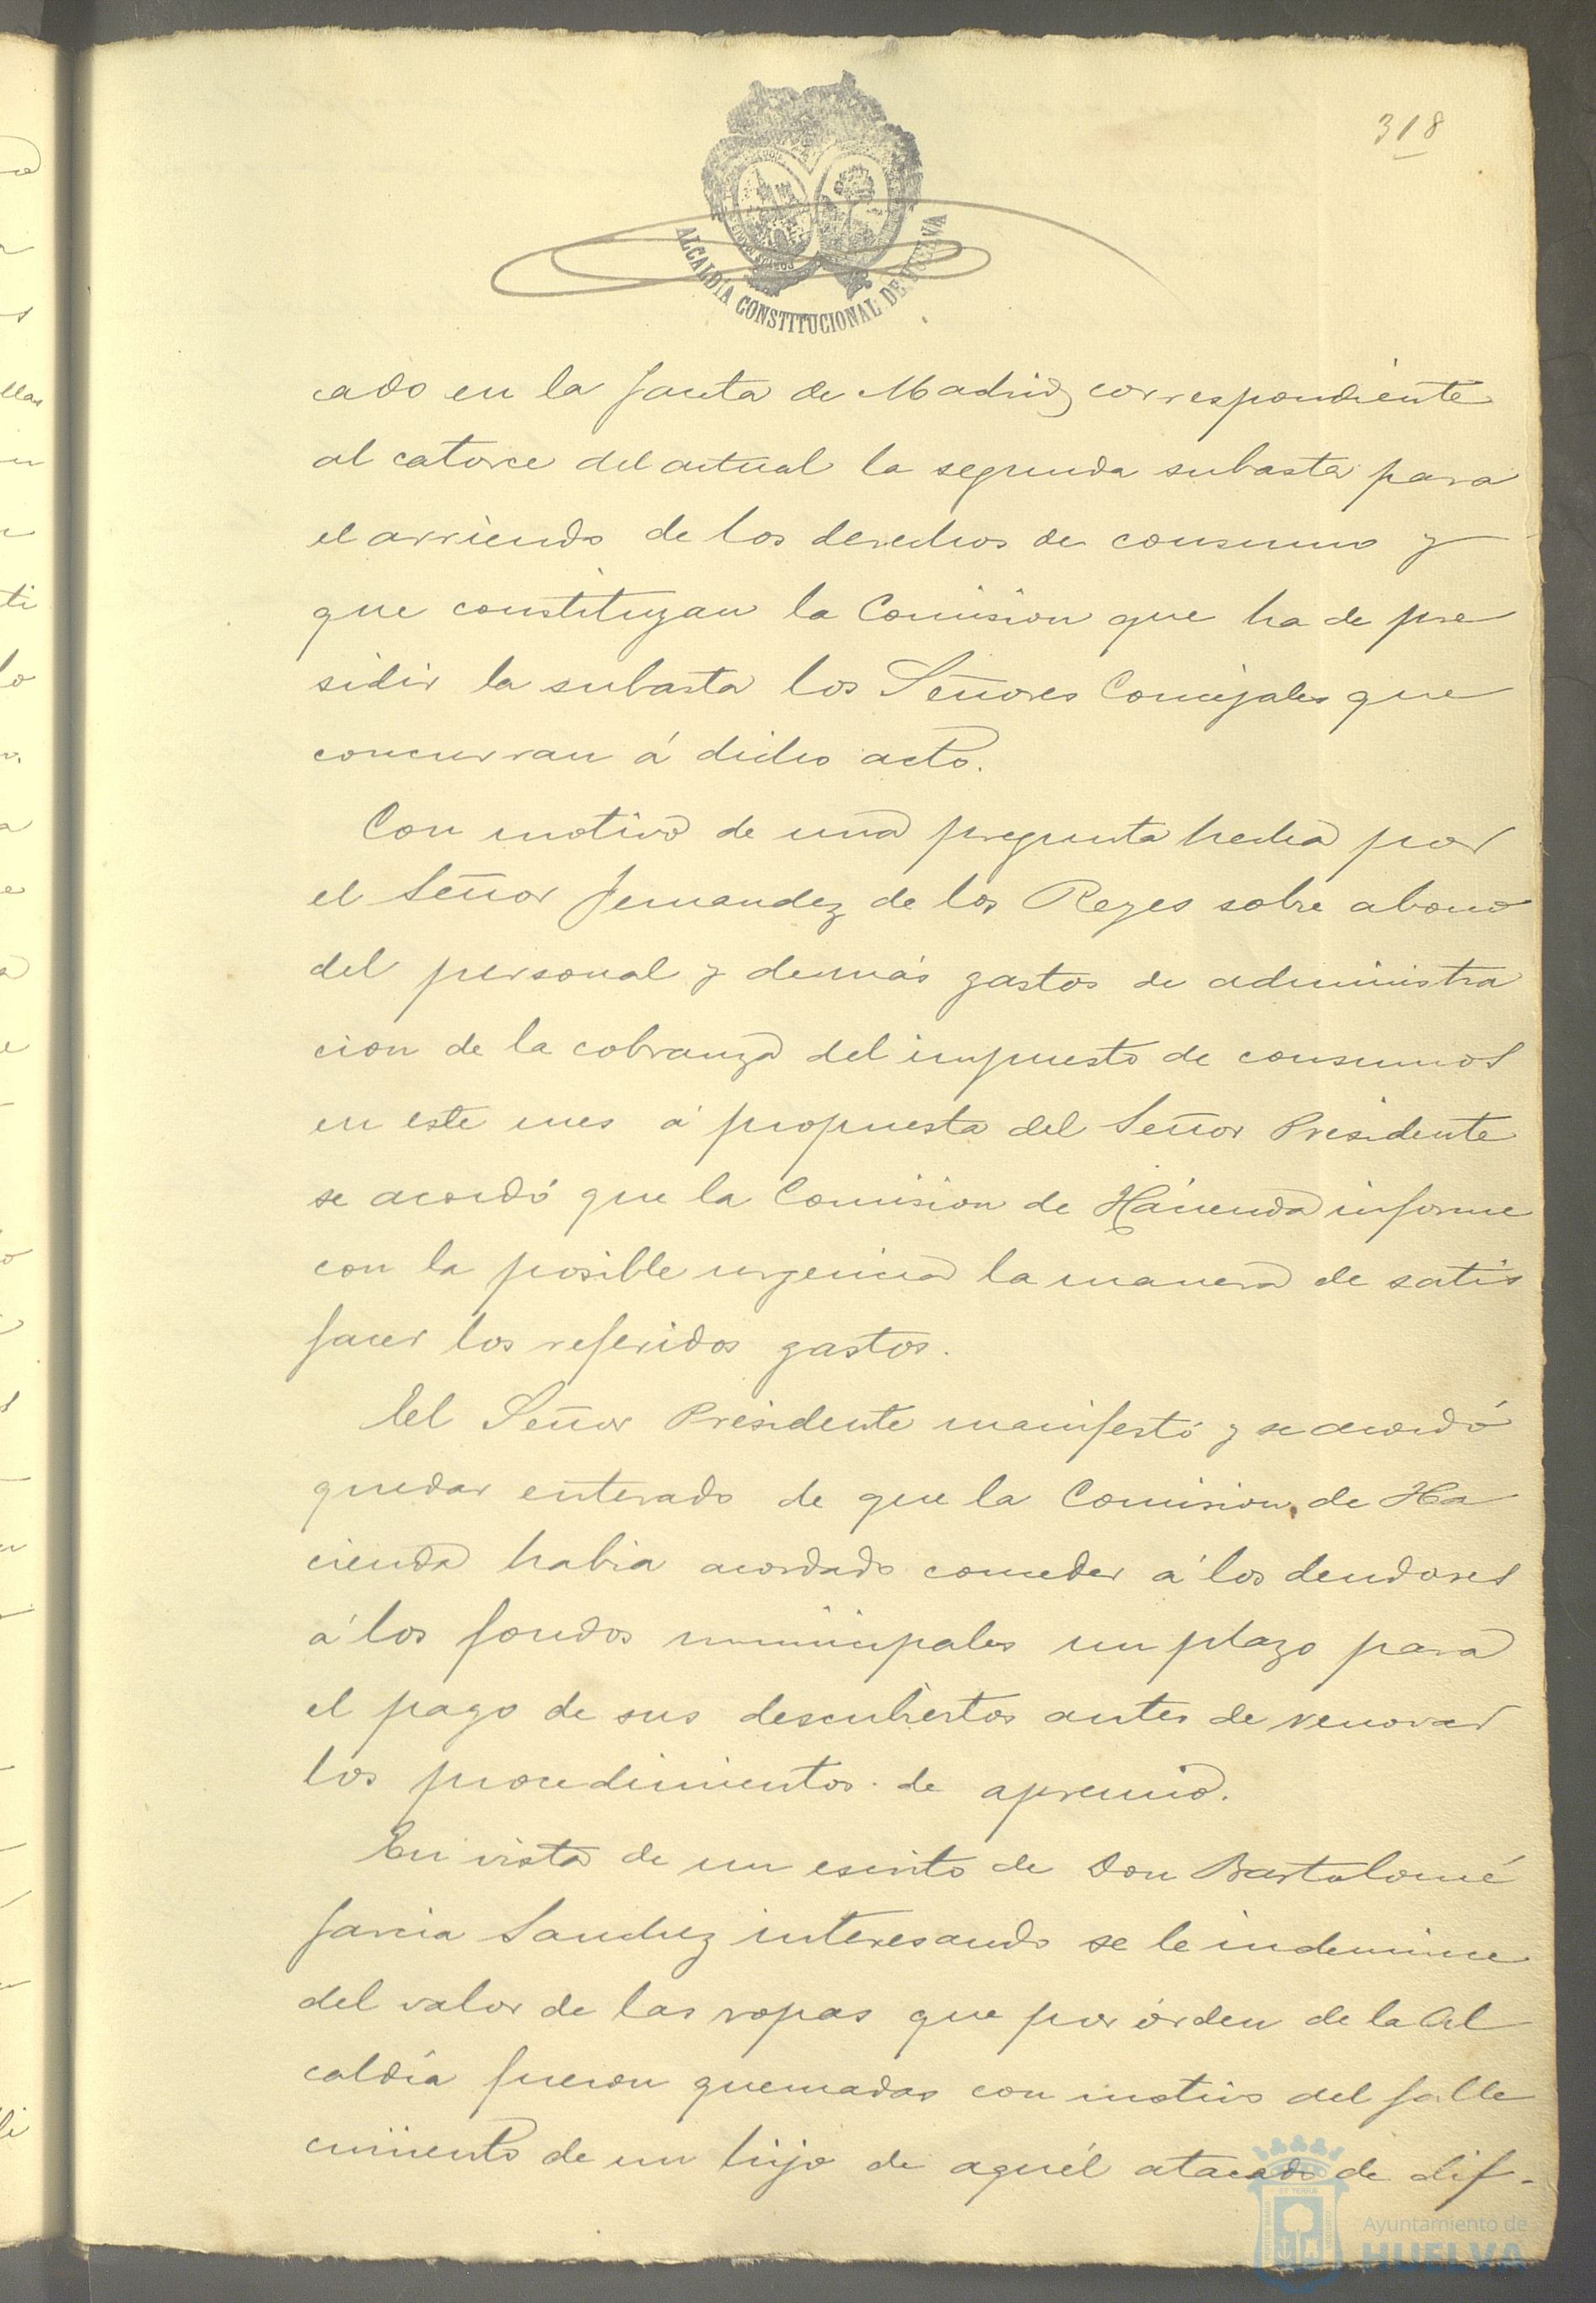 318
ALCALDÍA CONSTITUCIONAL DE HUELVA
cado en la Gaceta de Madrid, correspondiente
al catorce del actual la segunda subasta para
el arriendo de los derechos de consumo y
que constituyan la Comision que ha de pre
sidir la subasta los Señores Concejales que
concurran á dicho acto.
Con motivo de una pregunta hecha por
el Señor Fernandez de los Reyes sobre abono
del personal y demás gastos de administra
cion de la cobranza del impuesto de consumos
en este mes á propuesta del Señor Presidente
se acordó que la Comision de Hacienda informe
con la posible urgencia la manera de satis
facer los referidos gastos.
El Señor Presidente manifestó y se acordó
quedar enterado de que la Comision de Ha
cienda habia acordado conceder á los deudores
á los fondos municipales un plazo para
el pago de sus descubiertos antes de renovar
los procedimientos de apremio.
En vista de un escrito de Don Bartolomé
Garcia Sanchez interesando se le indemnice
del valor de las ropas que por órden de la Al
caldía fueron quemadas con motivo del falle
cimiento de un hijo de aquél atacado de dif-
Ayuntamiento de
HUELVA